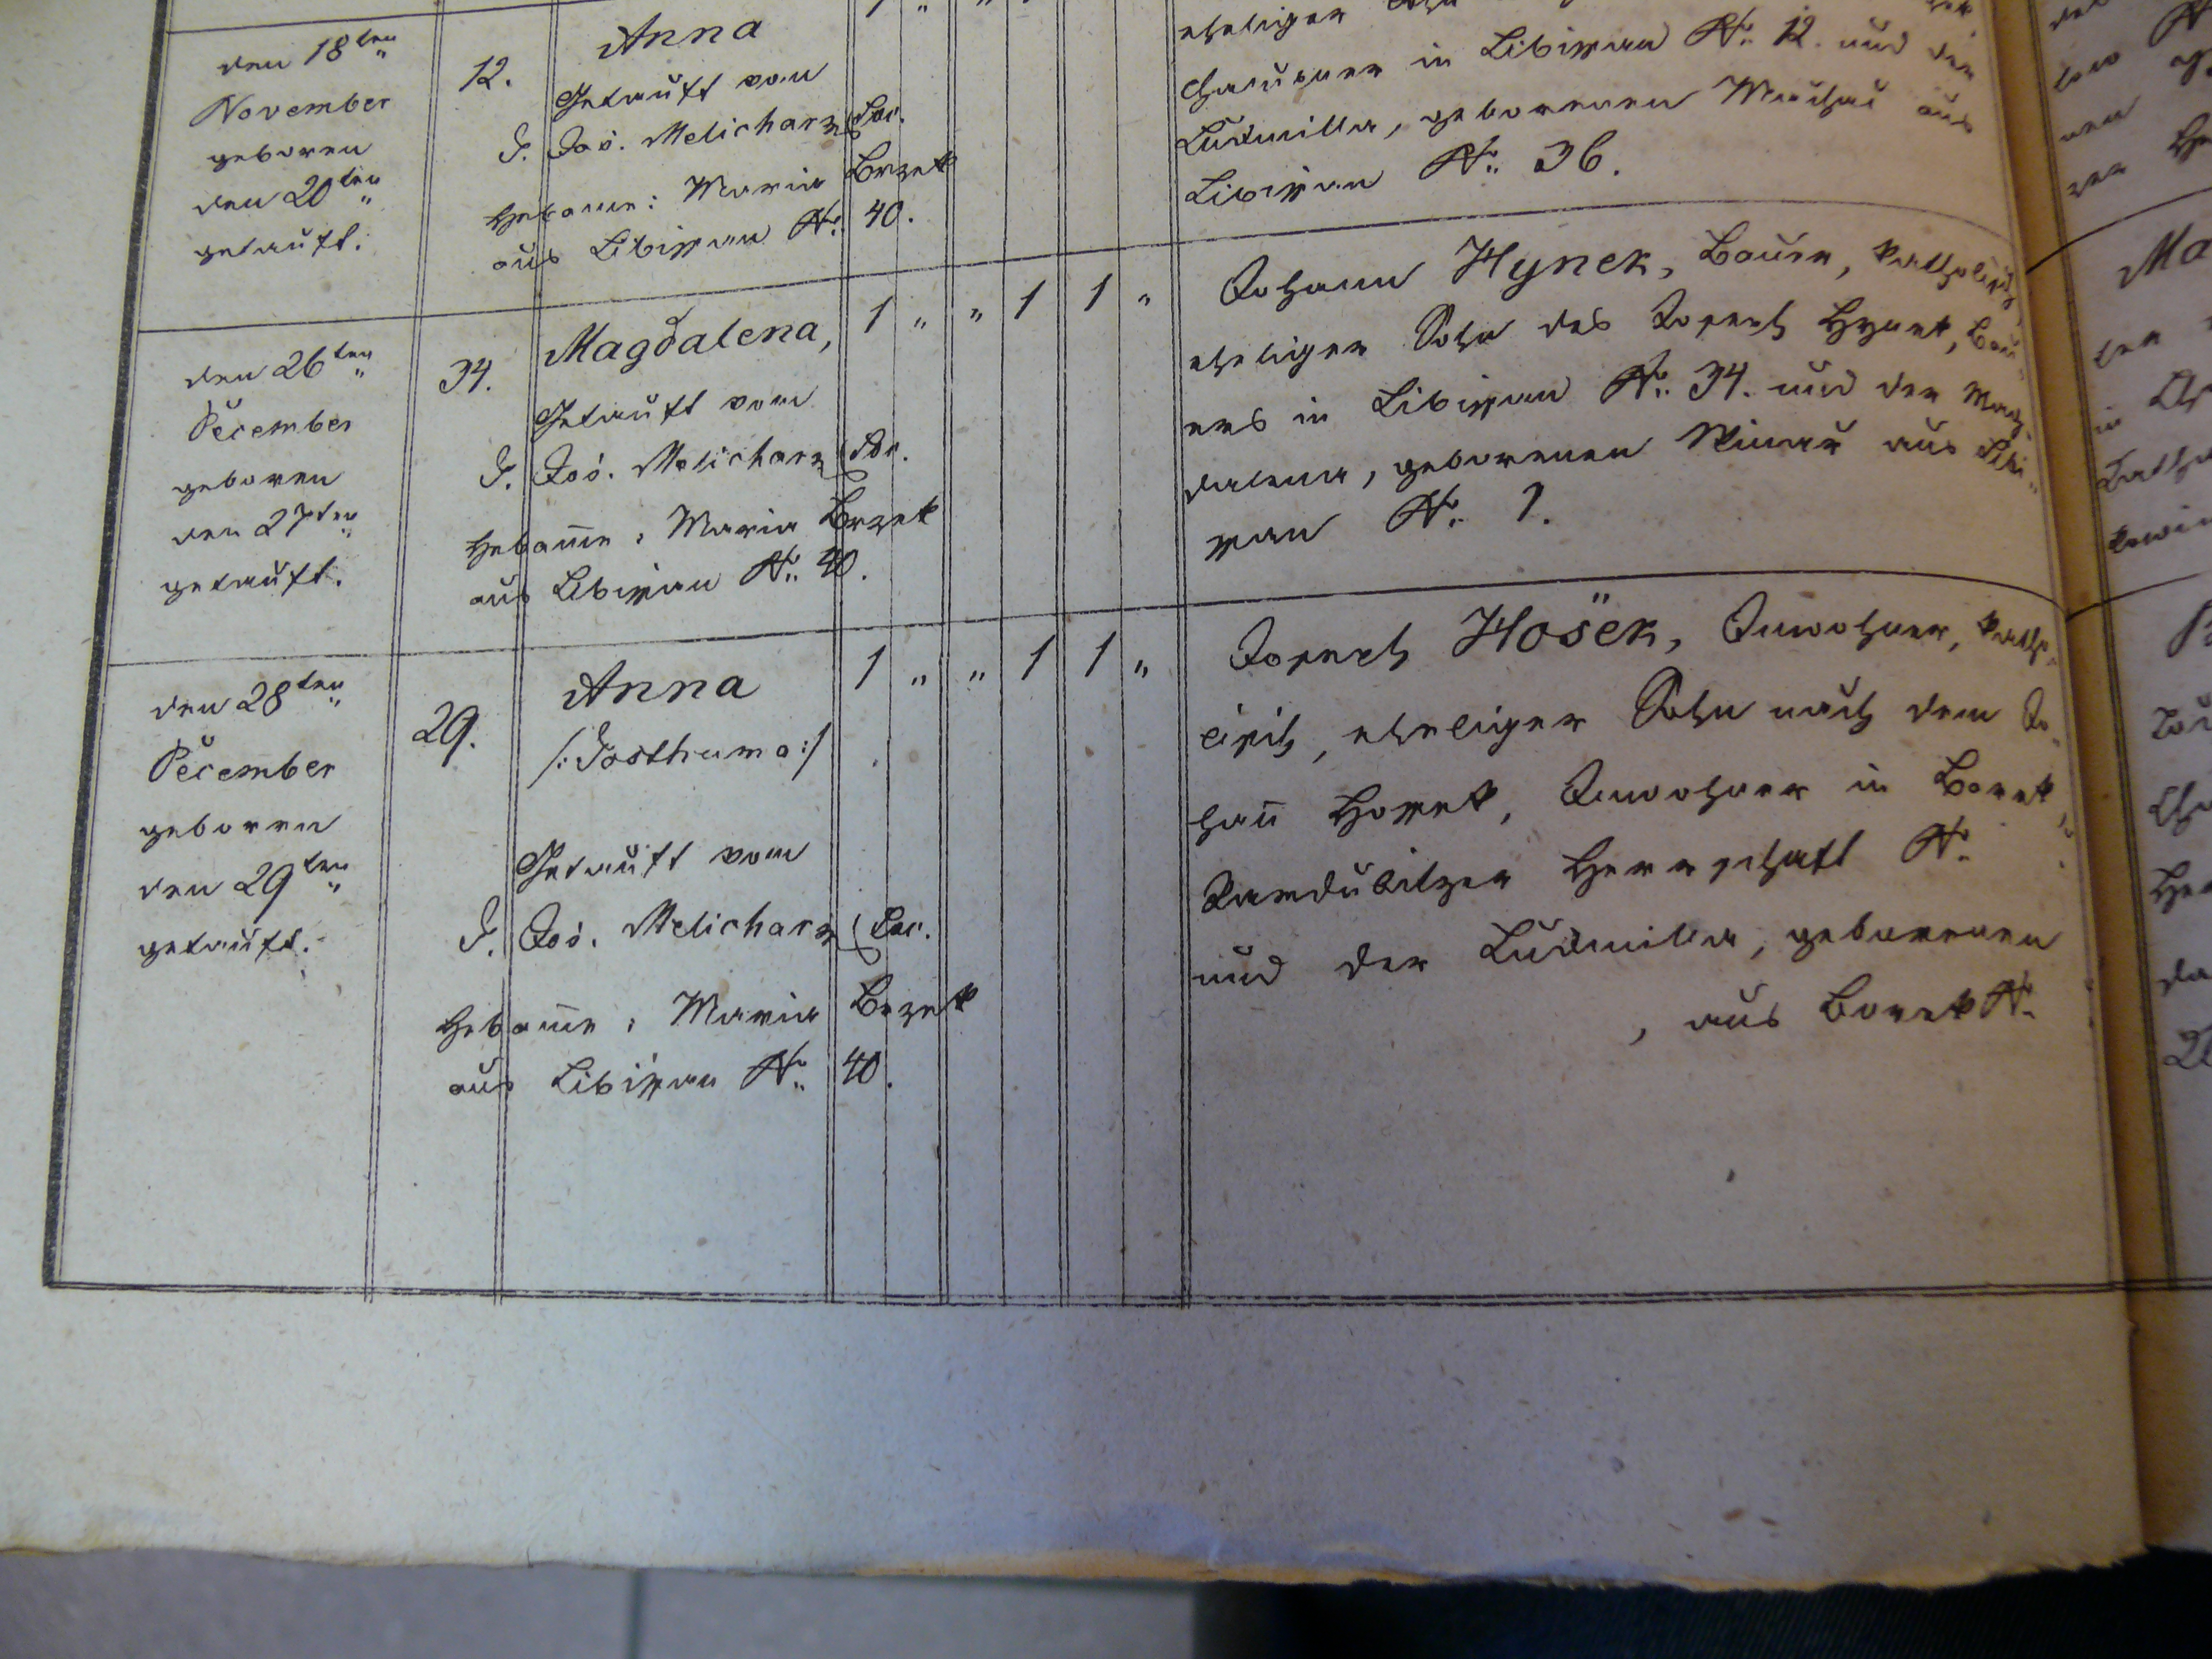 den 18ten
November
geboren
den 20ten
getauft.
12.
Anna
Getauft vom
P. Jos. Melicharz Loc.
Hebame: Maria Brzek
aus Libissan N: 40.
eheliger
Chalupner in Libissan N: 12. und der
Ludmilla, geborenen aus
Libissan N: 36.
den 26ten
December
geboren
den 27ten
getauft.
34.
Magdalena,
Getauft vom
P. Jos. Melicharz Loc.
Hebame: Maria Brzek
aus Libissan N: 40.
1 " " 1 1 "
Johann Hynek, Bauer, katholisch,
eheliger Sohn des Joseph Hynek, Bau-
ers in Libissan N: 34. und der Mag-
dalena, geborenen aus Libi-
ssan N: 1.
den 28ten
December
geboren
den 29ten
getauft.
29.
Anna
/: Posthuma :/
Getauft vom
P. Jos. Melicharz Loc.
Hebame: Maria Brzek
aus Libissan N: 40.
1 " " 1 1 "
Joseph Hosek, Inwohner, katho-
lisch, eheliger Sohn nach dem Jo-
hann Hossek, Inwohner in Borek,
Pardubitzer Herrschaft N:
und der Ludmilla, geborenen
, aus Borek N: